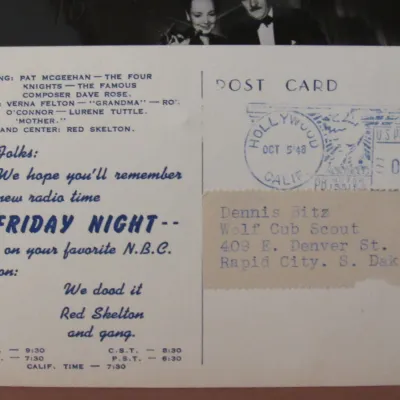 NG: PAT MCGEEHAN — THE FOUR
KNIGHTS — THE FAMOUS
COMPOSER DAVE ROSE.
VERNA FELTON — "GRANDMA" — RO
O'CONNOR — LURENE TUTTLE.
"MOTHER."
AND CENTER: RED SKELTON.
Folks:
We hope you'll remember
new radio time
FRIDAY NIGHT--
on your favorite N.B.C.
on:
We dood it
Red Skelton
and gang.
— 9:30 C.S.T. — 8:30
— 7:30 P.S.T. — 6:30
CALIF. TIME — 7:30
POST CARD
HOLLYWOOD
OCT 5 '48
CALIF.
U.S.P
0
Dennis Sitz
Wolf Cub Scout
409 E. Denver St.
Rapid City. S. Dak